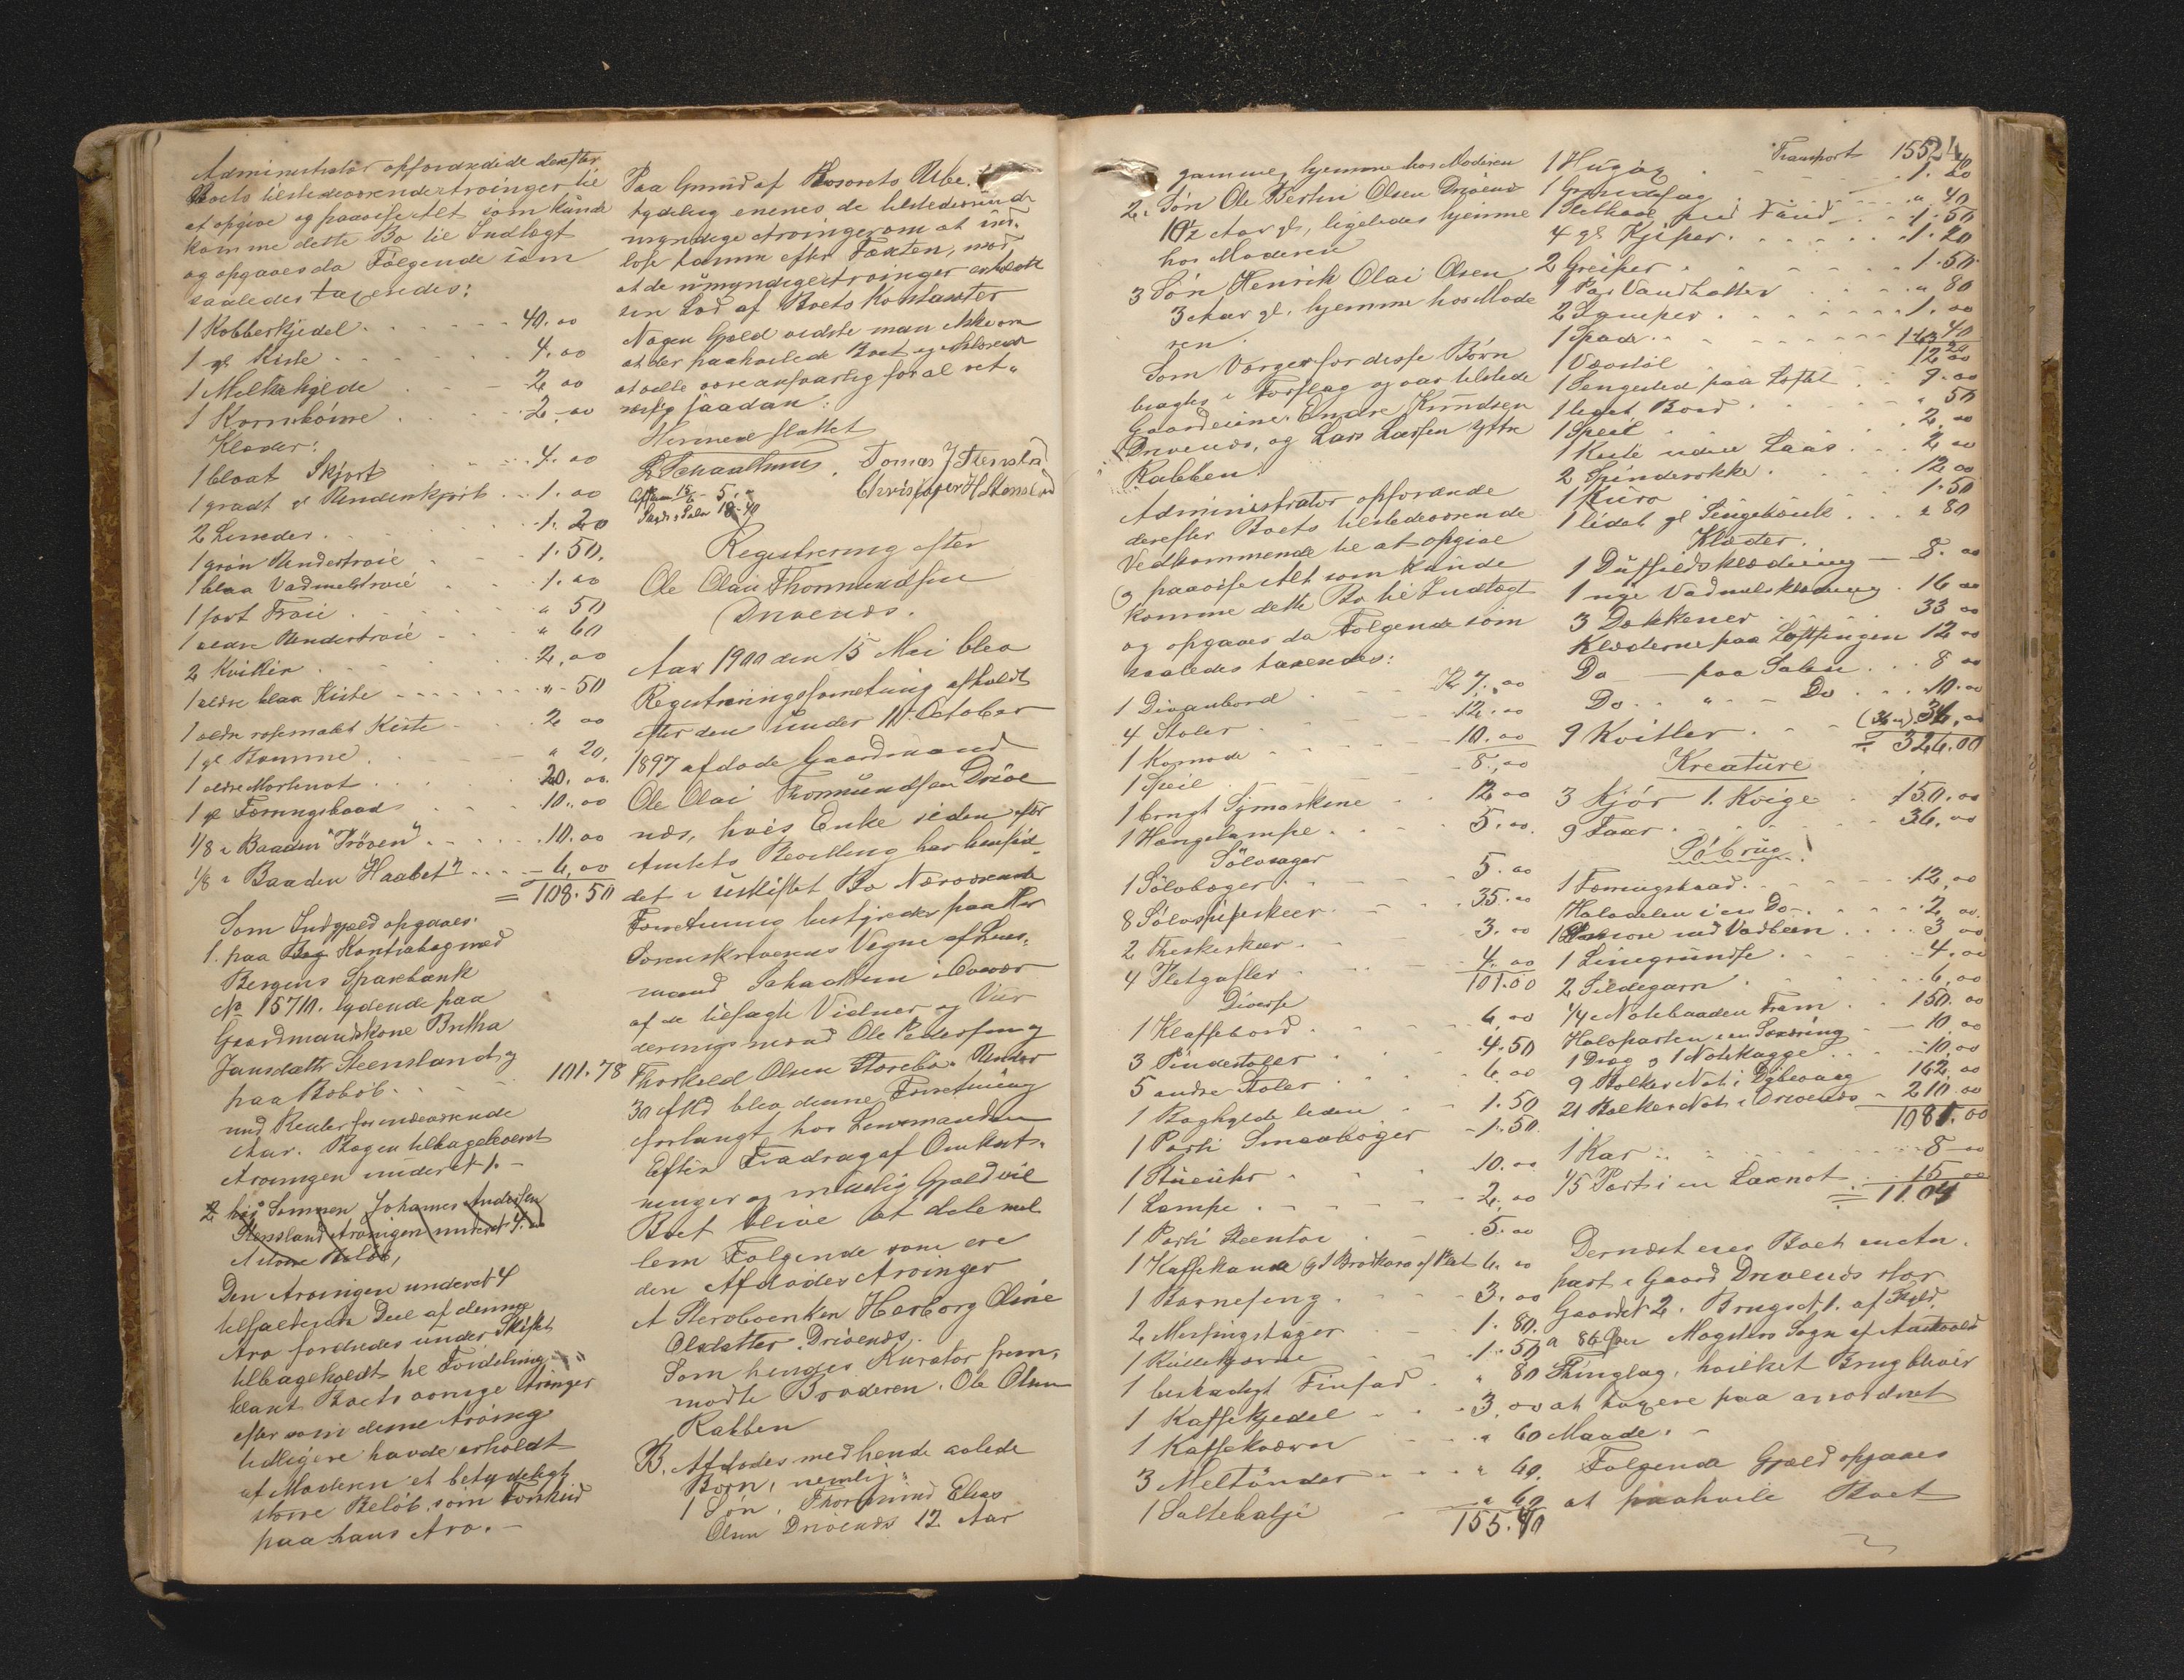 Administrator opfordrede derefter
Boets tilstedeværende Arvinger til
at opgive og paavise Alt som kunde
komme dette Bo til Indtægt
og opgaves da Følgende som
saaledes taxeredes:
1 Kobberkjedel 40.00
1 gl Kiste 4.00
1 Melkehylde 2.00
1 Kornbømme 2.00
Klæder:
1 blaat Skjørt 4.00
1 graat gl Underskjørt 1.00
2 Linneder 1.20
1 grøn Undertroie 1.50.
1 blaa Vadmelstroie 1.00
1 sort Troie " 50
1 ældre Undertroie " 60
2 Kvitler 2,00
1 ældre blaa Kiste " 50
1 ældre rosemalet Kiste 2 00
1 gl Bomme " 20,
1 ældre Mortenot 20.00.
1 gl Færingsbaad 10.00
1/8 i Baaden "Prøven" 10.00
1/8 i Baaden "Haabet" 6,00
= 108.50
Som Indgjeld opgaves
1. paa Bog Kontrabog med
Bergens Sparebank
No 15710. lydende paa
Gaardmandskone Britha
Jansdatter Steensland og
paa Beløb 101.78
med Renter for indeværende
Aar. Bogen tilbageleveret
Arvingen under Nr 1. -
2 hos Sønnen Johannes Andersen
Stensland Arvingen under Nr 4.
Den Arvingen under Nr 4
tilfaldende Deel af denne
Arv fordredes under Skiftet
tilbageholdt til Fordeling
blant Boets øvrige Arvinger
efter som denne Arving
tidligere havde erholdt
af Moderen et betydeligt
større Beløb som Forskud
paa hans Arv. -
Paa Grund af Boets Ube-
tydelig enedes de tilstedeværende
myndige Arvinger om at ind-
løse samme efter Taxten, mod
at de umyndige Arvinger erholdt
sin Lod af Boets Kontanter
Nogen Gjæld vidste man ikke om
at der paahvilede Boet og erklærede
at ville være ansvarlig for al ret-
mæssig saadan:
Hermed sluttet
Schaathun. Tomas J Stensland
Christofer H Stensland
5.
18.40
Registrering efter
Ole Olai Thormundsen
Drivenes.
Aar 1900 den 15 Mai blev
Registreringsforretning afholdt
efter den under 11 October
1897 afdøde Gaardmand
Ole Olai Thormundsen Drive
næs, hvis Enke siden efter
Amtets Bevilling har hensid-
det i uskiftet Bo Nærværende
Forretning bestyredes paa Hr
Sorenskriverens Vegne af Lens-
mand Schaathun i Overvær
af de tilsagte Vidner og Vur
deringsmænd Ole Pedersen og
Thorkeld Olsen Storebø. Under
30 April blev denne Forretning
forlangt hos Lensmanden
Efter Fradrag af Omkost-
ninger og mulig Gjæld vil
Boet blive at dele mel
lem Følgende som ere
den Afdødes Arvinger
A Sterboenken Herborg Oline
Olsdatter Drivenes.
Som hendes Kurator frem-
mødte Broderen Ole Olsen
Rabben
B. Afdødes med hende avlede
Børn, nemlig:
1 Søn, Thormund Elias
Olsen Drivenes 12 Aar
gammel, hjemme hos Moderen
2. Søn Ole Bertin Olsen Drivenes
10½ Aar gl, ligeledes hjemme
hos Moderen
3 Søn Henrik Olai Olsen
3 Aar gl. hjemme hos Mode
ren.
Som Værger for disse Børn
bragtes i Forslag og var tilstede
Gaardeierne Endre Knudsen
Drivenes, og Lars Larsen Yttre
Rabben.
Administrator opfordrede
derefter Boets tilstedeværende
Vedkommende til at opgive
og paavise Alt som kunde
komme dette Bo til Indtægt
og opgaves da Følgende som
saaledes taxeredes:
1 Divanbord Kr 7.00
4 Stoler 12.00
1 Komode 10.00
1 Speil 8,00
1 brugt Symaskine 12 00
1 Hængelampe 5.00.
Sølvsager
1 Sølvbæger 5.00
8 Sølvspiseskeer 35.00
2 Theskeer 3.00
4 Pletgafler 4.00
101.00
Diverse
1 Klaffebord 6,00
3 Pindestoler 4.50
5 andre Stoler 6.00
1 Boghylde liden 1.50
1 Parti Smaabøger 1.50
1 Stueuhr 10.00
1 Lampe 2,00
1 Parti Steentøi 5.00
1 Kaffekande og 1 Brødkurv af Plet 6.00
1 Barneseng 3.00
2 Messingstager 1.80.
1 Rullekjevne 1.50
1 beskadiget Finfad " 80
1 Kaffekjedel 3,00
1 Kaffekværn " 60
3 Meltønder " 60.
1 Saltebalje " 60
155.40
Transport 155.40
1 Hugøx 1.20
1 Grindsag " 40
1 Stetkar med Vand 1.50
4 gl Kjiper 1.20
2 Greiper 1.50
1 Par Vandbøtter " 80
2 Lamper 1.00
1 Spade " 40
1 Vævstol 12.00
1 Sengested paa Loftet 9.00
1 lidet Bord " 50
1 Speil 2,00
1 Kiste uden Laas 2 00
2 Spinderokke 12 00
1 Kurv 1.50
1 lidet gl Sengebænk " 80
Klæder.
1 Duffelsklædning 8.00
1 nye Vadmelsklædning 16 00
3 Dækkener 33 00
Klæderne paa Loftsengen 12 00
Do paa Salen 8 00
Do " Do 10.00
9 Kvitler 36,00
= 326.00
Kreature
3 Kjør 1 Kvige 150.00
9 Faar 36.00
Søbrug
1 Færingsbaad 12,00
Halvdelen i en Do 2,00.
med Vadbeen 3 00
1 Linegrundse 4.00
2 Sildegarn 6,00
¼ i Notebaaden Fram 150.00
Halvparten i en Sexæring 10,00
1 Dræg og 1 Notekagge 10,00
9 Bolker Not i Dybevaag 162,00
21 Bolker Not i Drivenes 210 00
1081.00
1 Kar 8 00
1/5 Parti i en Laxnot 15 00
= 1104
Dernæst eier Boet en An-
part i Gaard Drivenes stor
Gaards No 2. Brugs No 1. af Skyld
a 86 Øre Møgsters Sogn af Austevold
Thinglag, hvilket Brug bliver
at taxere paa anordnet
Maade. -
Følgende Gjæld opgaves
at paahvile Boet